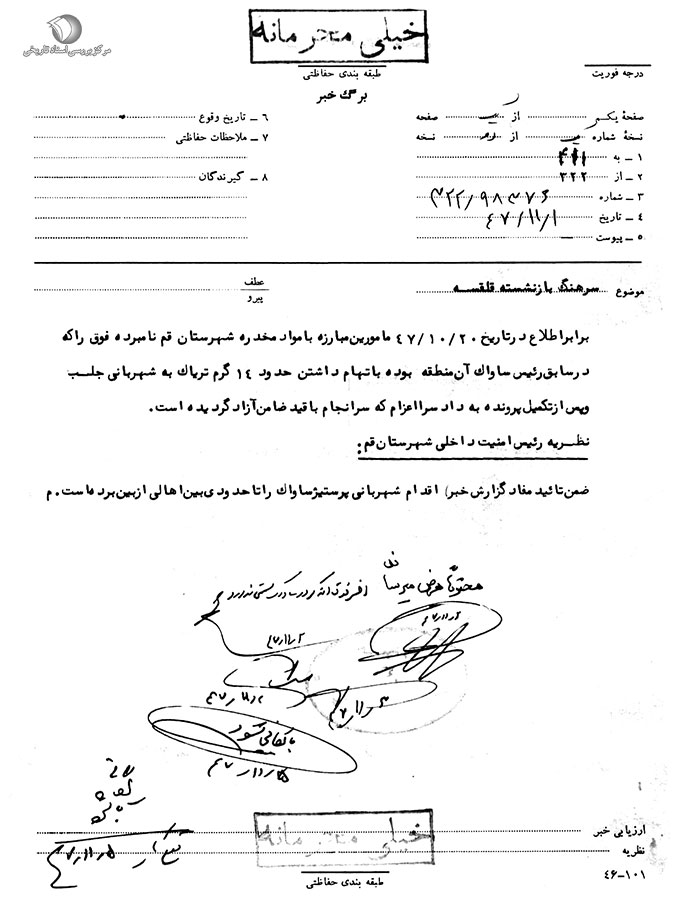 مرکز بررسی اسناد تاریخی
خیلی محرمانه
طبقه بندی حفاظتی
درجه فوریت
برگ خبر
صفحهٔ یکم از صفحه
نسخهٔ شماره از نسخه
۱ ـ به ۴۱۱
۲ ـ از ۳۲۲
۳ ـ شماره
۴ ـ تاریخ ۴۷/۱۱/۱
۵ ـ پیوست
۶ ـ تاریخ وقوع
۷ ـ ملاحظات حفاظتی
۸ ـ گیرندگان
موضوع سرهنگ بازنشسته قلقسه
عطف
پیرو
برابر اطلاع در تاریخ ۴۷/۱۰/۲۰ مامورین مبارزه با مواد مخدره شهرستان قم نامبرده فوق را که
در سابق رئیس ساواک آن منطقه بوده با تهام داشتن حدود ۱۴ گرم تریاک به شهربانی جلب
و پس از تکمیل پرونده به دادسرا اعزام که سرانجام با قید ضامن آزاد گردیده است.
نظریه رئیس امنیت داخلی شهرستان قم:
ضمن تائید مفاد گزارش خبر) اقدام شهربانی پرستیژ ساواک را تا حدودی بین اهالی از بین برده است. م
محترماً بعرض میرساند
بایگانی شود
خیلی محرمانه
ارزیابی خبر
نظریه
طبقه بندی حفاظتی
۴۶-۱۰۱